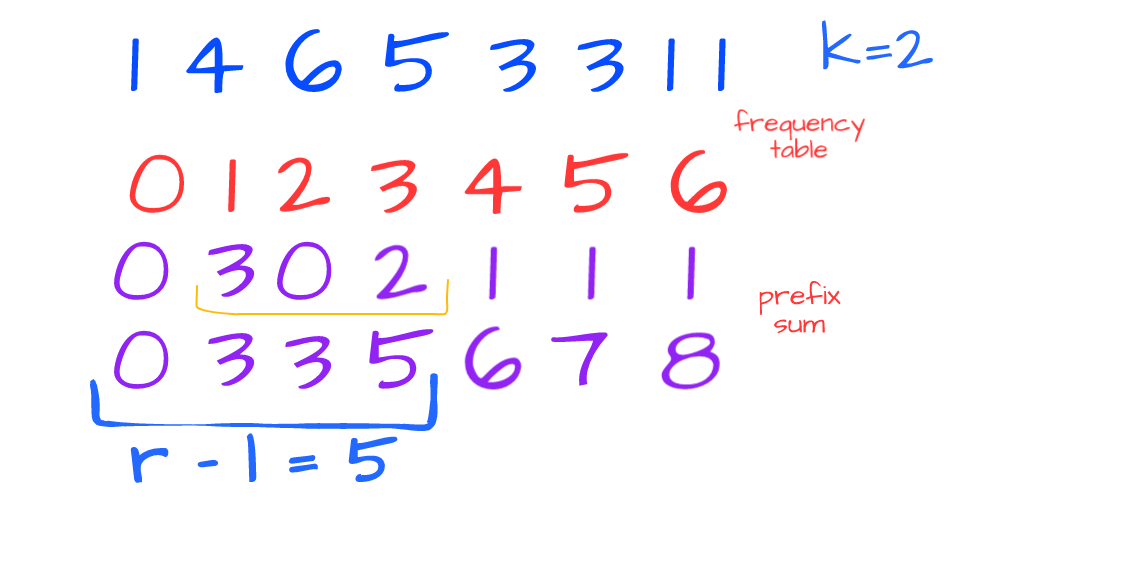 1 4 6 5 3 3 1 1
k=2
frequency
table
0 1 2 3 4 5 6
0 3 0 2 1 1 1
prefix
sum
0 3 3 5 6 7 8
r - 1 = 5